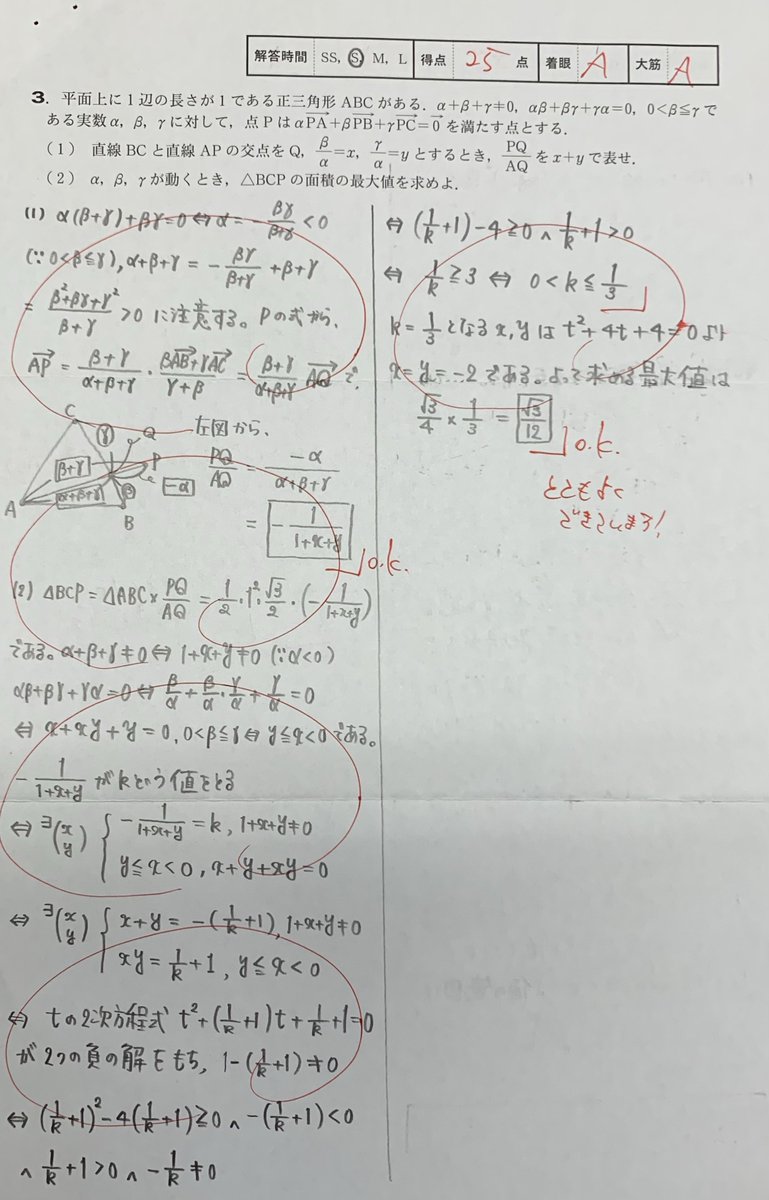 解答時間 SS, S, M, L 得点 25 点 着眼 A 大筋 A
3. 平面上に1辺の長さが1である正三角形 ABC がある. α+β+γ≠0, αβ+βγ+γα=0, 0<β≦γ で
ある実数α, β, γに対して, 点Pは αPA+βPB+γPC=0 を満たす点とする.
(1) 直線 BC と直線 AP の交点を Q, β/α=x, γ/α=y とするとき, PQ/AQ を x+y で表せ.
(2) α, β, γが動くとき, △BCP の面積の最大値を求めよ.
(1) α(β+γ)+βγ=0 ⇔ α=-βγ/(β+γ) <0
(∵0<β≦γ), α+β+γ = -βγ/(β+γ) +β+γ
= (β²+βγ+γ²)/(β+γ) >0 に注意する。Pの式から、
AP = (β+γ)/(α+β+γ) · (βAB+γAC)/(γ+β) = (β+γ)/(α+β+γ) AQ で、
左図から、
C γ Q
β+γ P
α+β+γ β -α
A B
PQ/AQ = -α/(α+β+γ)
= -1/(1+x+y)
o.k.
(2) △BCP = △ABC × PQ/AQ = 1/2 · 1² · √3/2 · (-1/(1+x+y))
である。α+β+γ≠0 ⇔ 1+x+y≠0 (∵α<0)
αβ+βγ+γα=0 ⇔ β/α + β/α · γ/α + γ/α = 0
⇔ x+xy+y=0, 0<β≦γ ⇔ y≦x<0 である。
-1/(1+x+y) がkという値をとる
⇔ ∃(x y) { -1/(1+x+y) = k, 1+x+y≠0
y≦x<0, x+y+xy=0
⇔ ∃(x y) { x+y = -(1/k+1), 1+x+y≠0
xy = 1/k+1, y≦x<0
⇔ tの2次方程式 t²+(1/k+1)t+1/k+1=0
が2つの負の解をもち, 1-(1/k+1)≠0
⇔ (1/k+1)²-4(1/k+1)≧0 ∧ -(1/k+1)<0
∧ 1/k+1>0 ∧ -1/k≠0
⇔ (1/k+1)-4≧0 ∧ 1/k+1>0
⇔ 1/k≧3 ⇔ 0<k≦1/3
k=1/3 となる x,y は t²+4t+4=0 より
x=y=-2である。よって求める最大値は
√3/4 × 1/3 = √3/12
o.k.
とてもよく
できています!